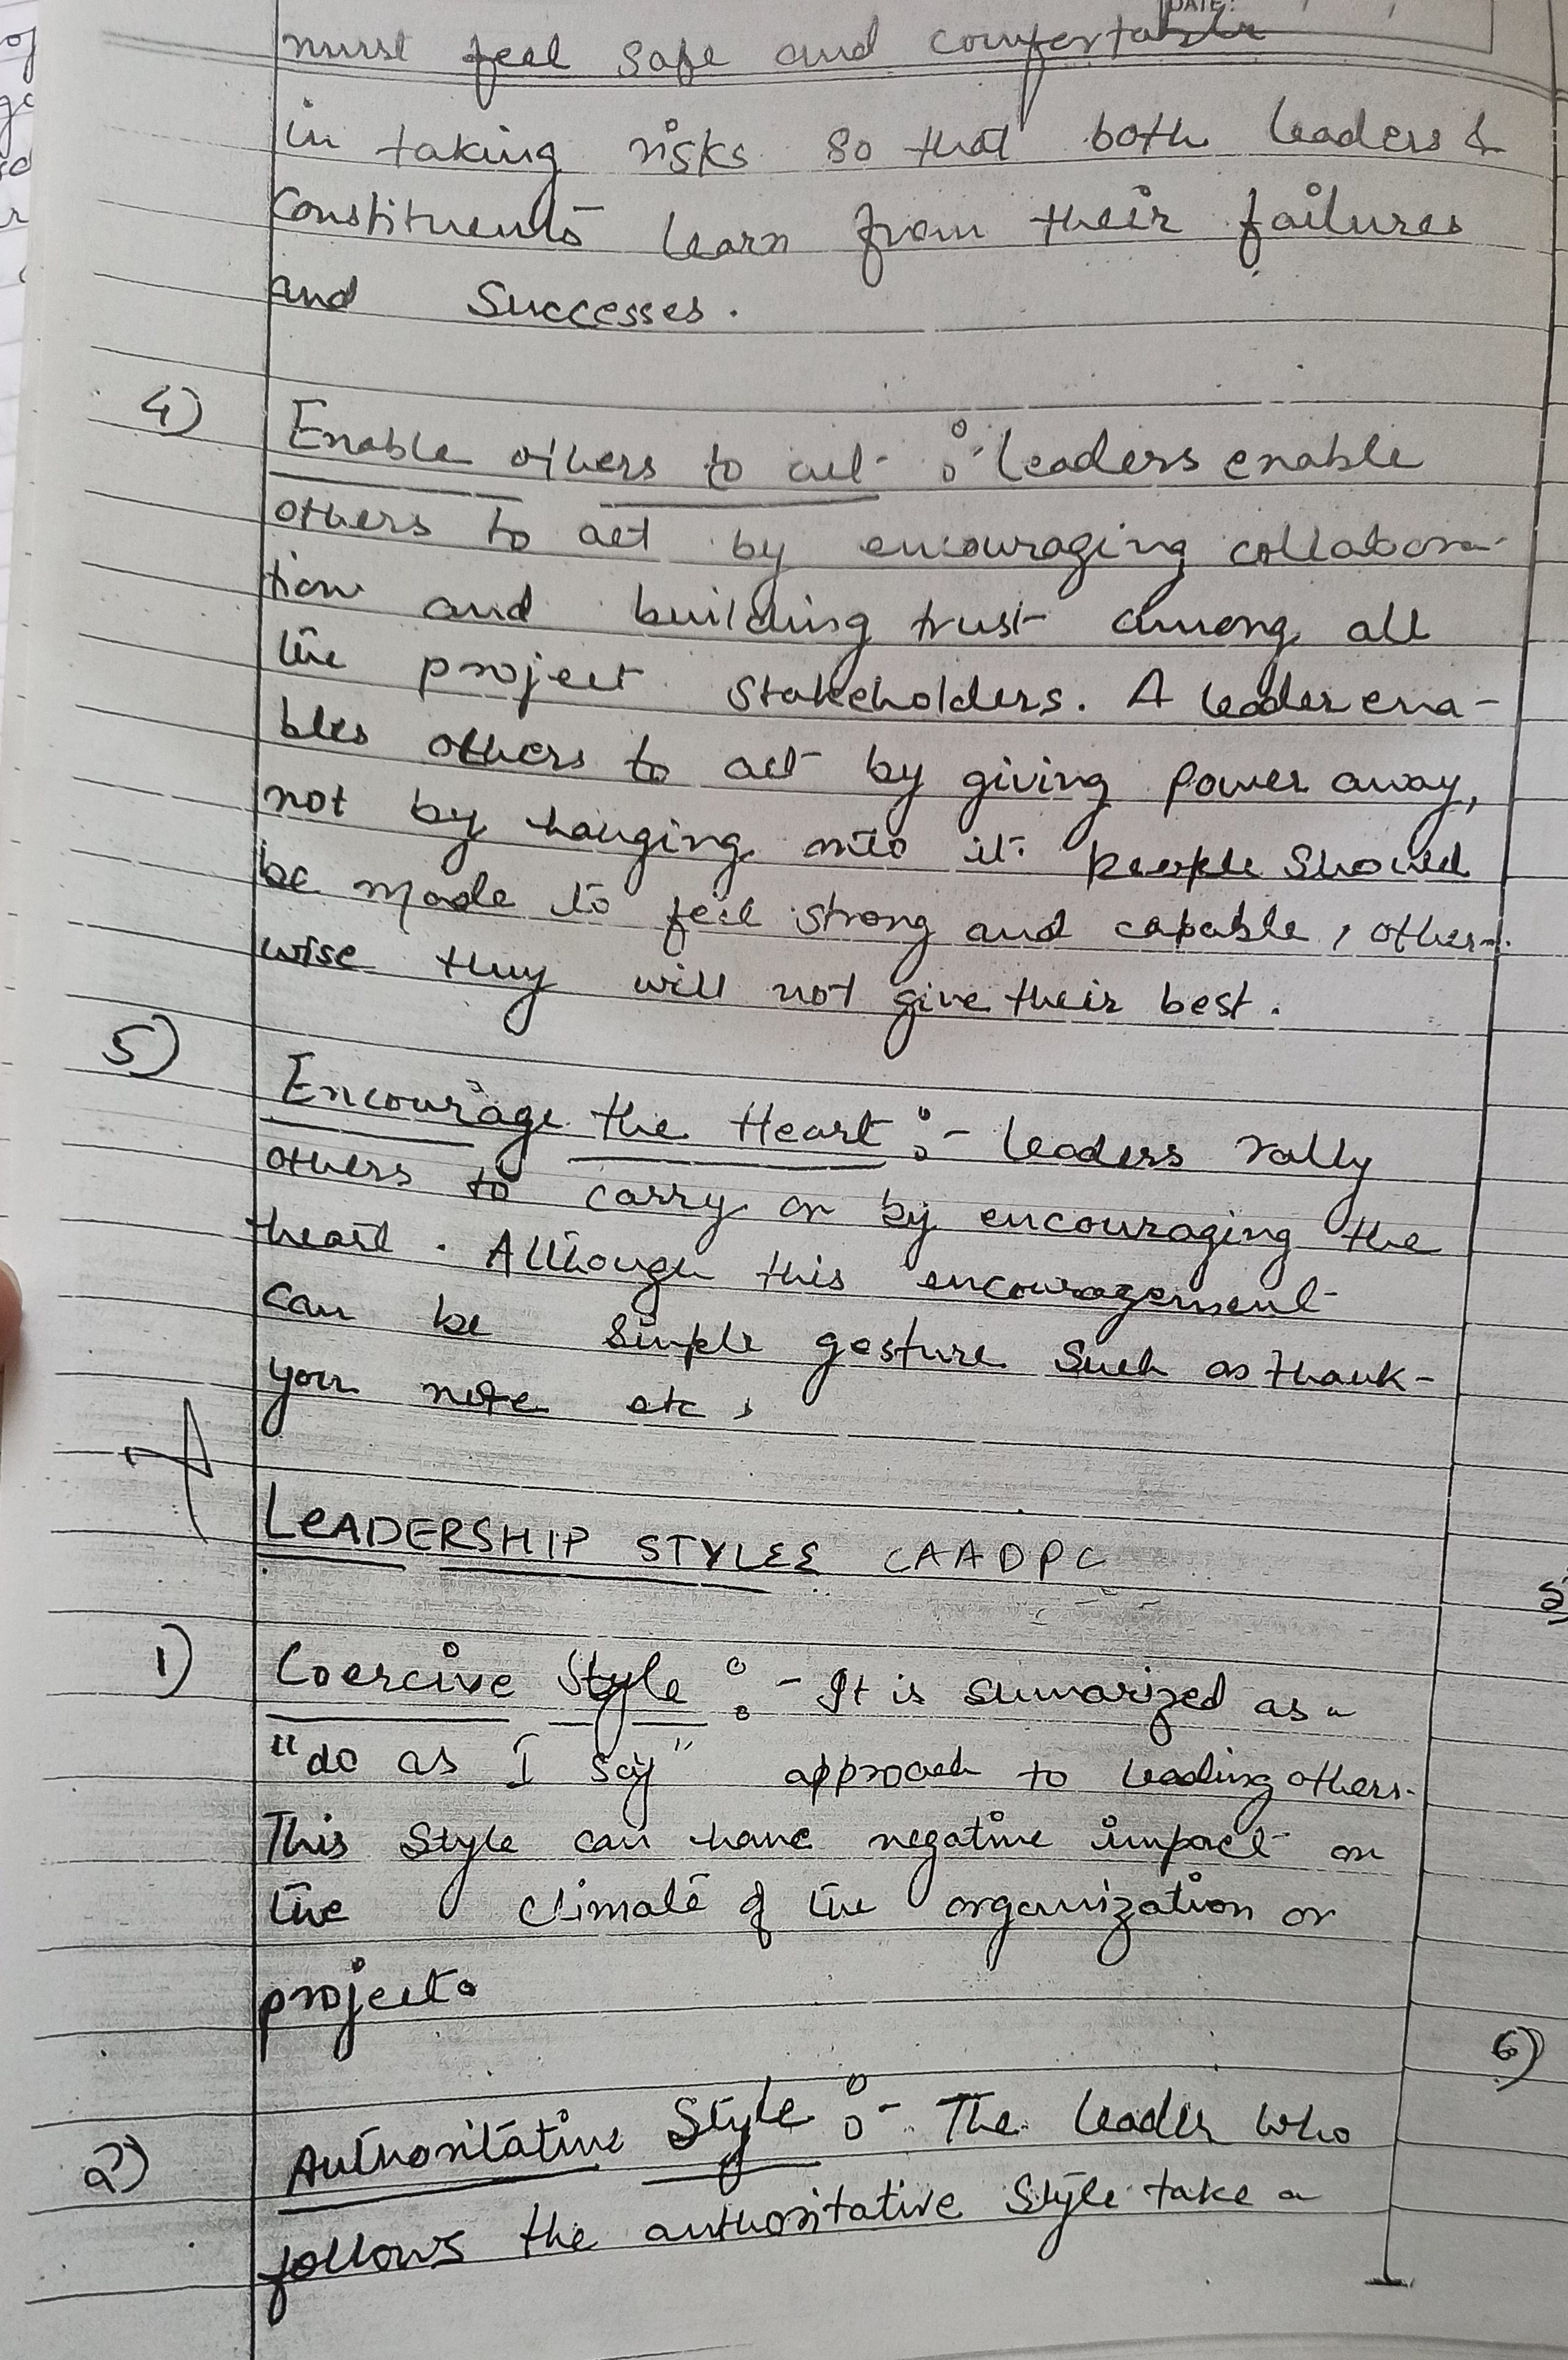 DATE:
must feel safe and comfortable
in taking risks so that both leaders &
constituents learn from their failures
and successes.
4) Enable others to act :- leaders enable
others to act by encouraging collabora-
tion and building trust among all
the project stakeholders. A leader ena-
bles others to act by giving power away,
not by hanging onto it. people should
be made to feel strong and capable, other-
wise they will not give their best.
5) Encourage the Heart :- leaders rally
others to carry on by encouraging the
heart. Although this encouragement
can be simple gesture such as thank-
you note etc,
LEADERSHIP STYLES CAADPC
1) Coercive Style :- It is sumarized as a
"do as I say" approach to leading others.
This style can have negative impact on
the climate of the organization or
project.
2) Authoritative Style :- The leader who
follows the authoritative style take a
5)
6)